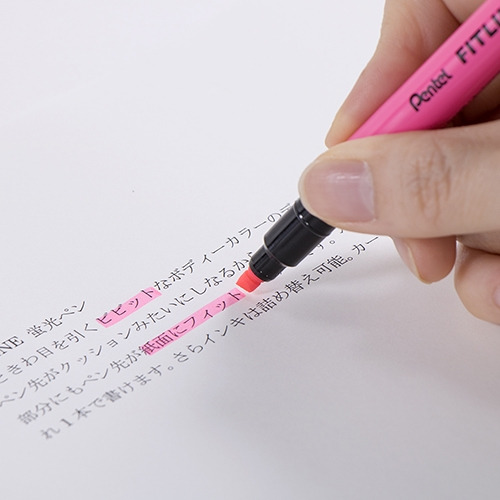 Pentel FITLI
INE 蛍光ペン
ときわ目を引くビビットなボディーカラーの
ペン先がクッションみたいにしなるか
部分にもペン先が紙面にフィット
さらインキは詰め替え可能。カー
れ1本で書けます。